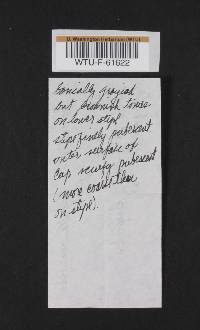 U. Washington Herbarium (WTU)
WTU-F-61622
basically grayish
but brownish tones
on lower stipe
stipe finely pubescent
outer surface of
cap scurfy pubescent
(more coarse than
on stipe).